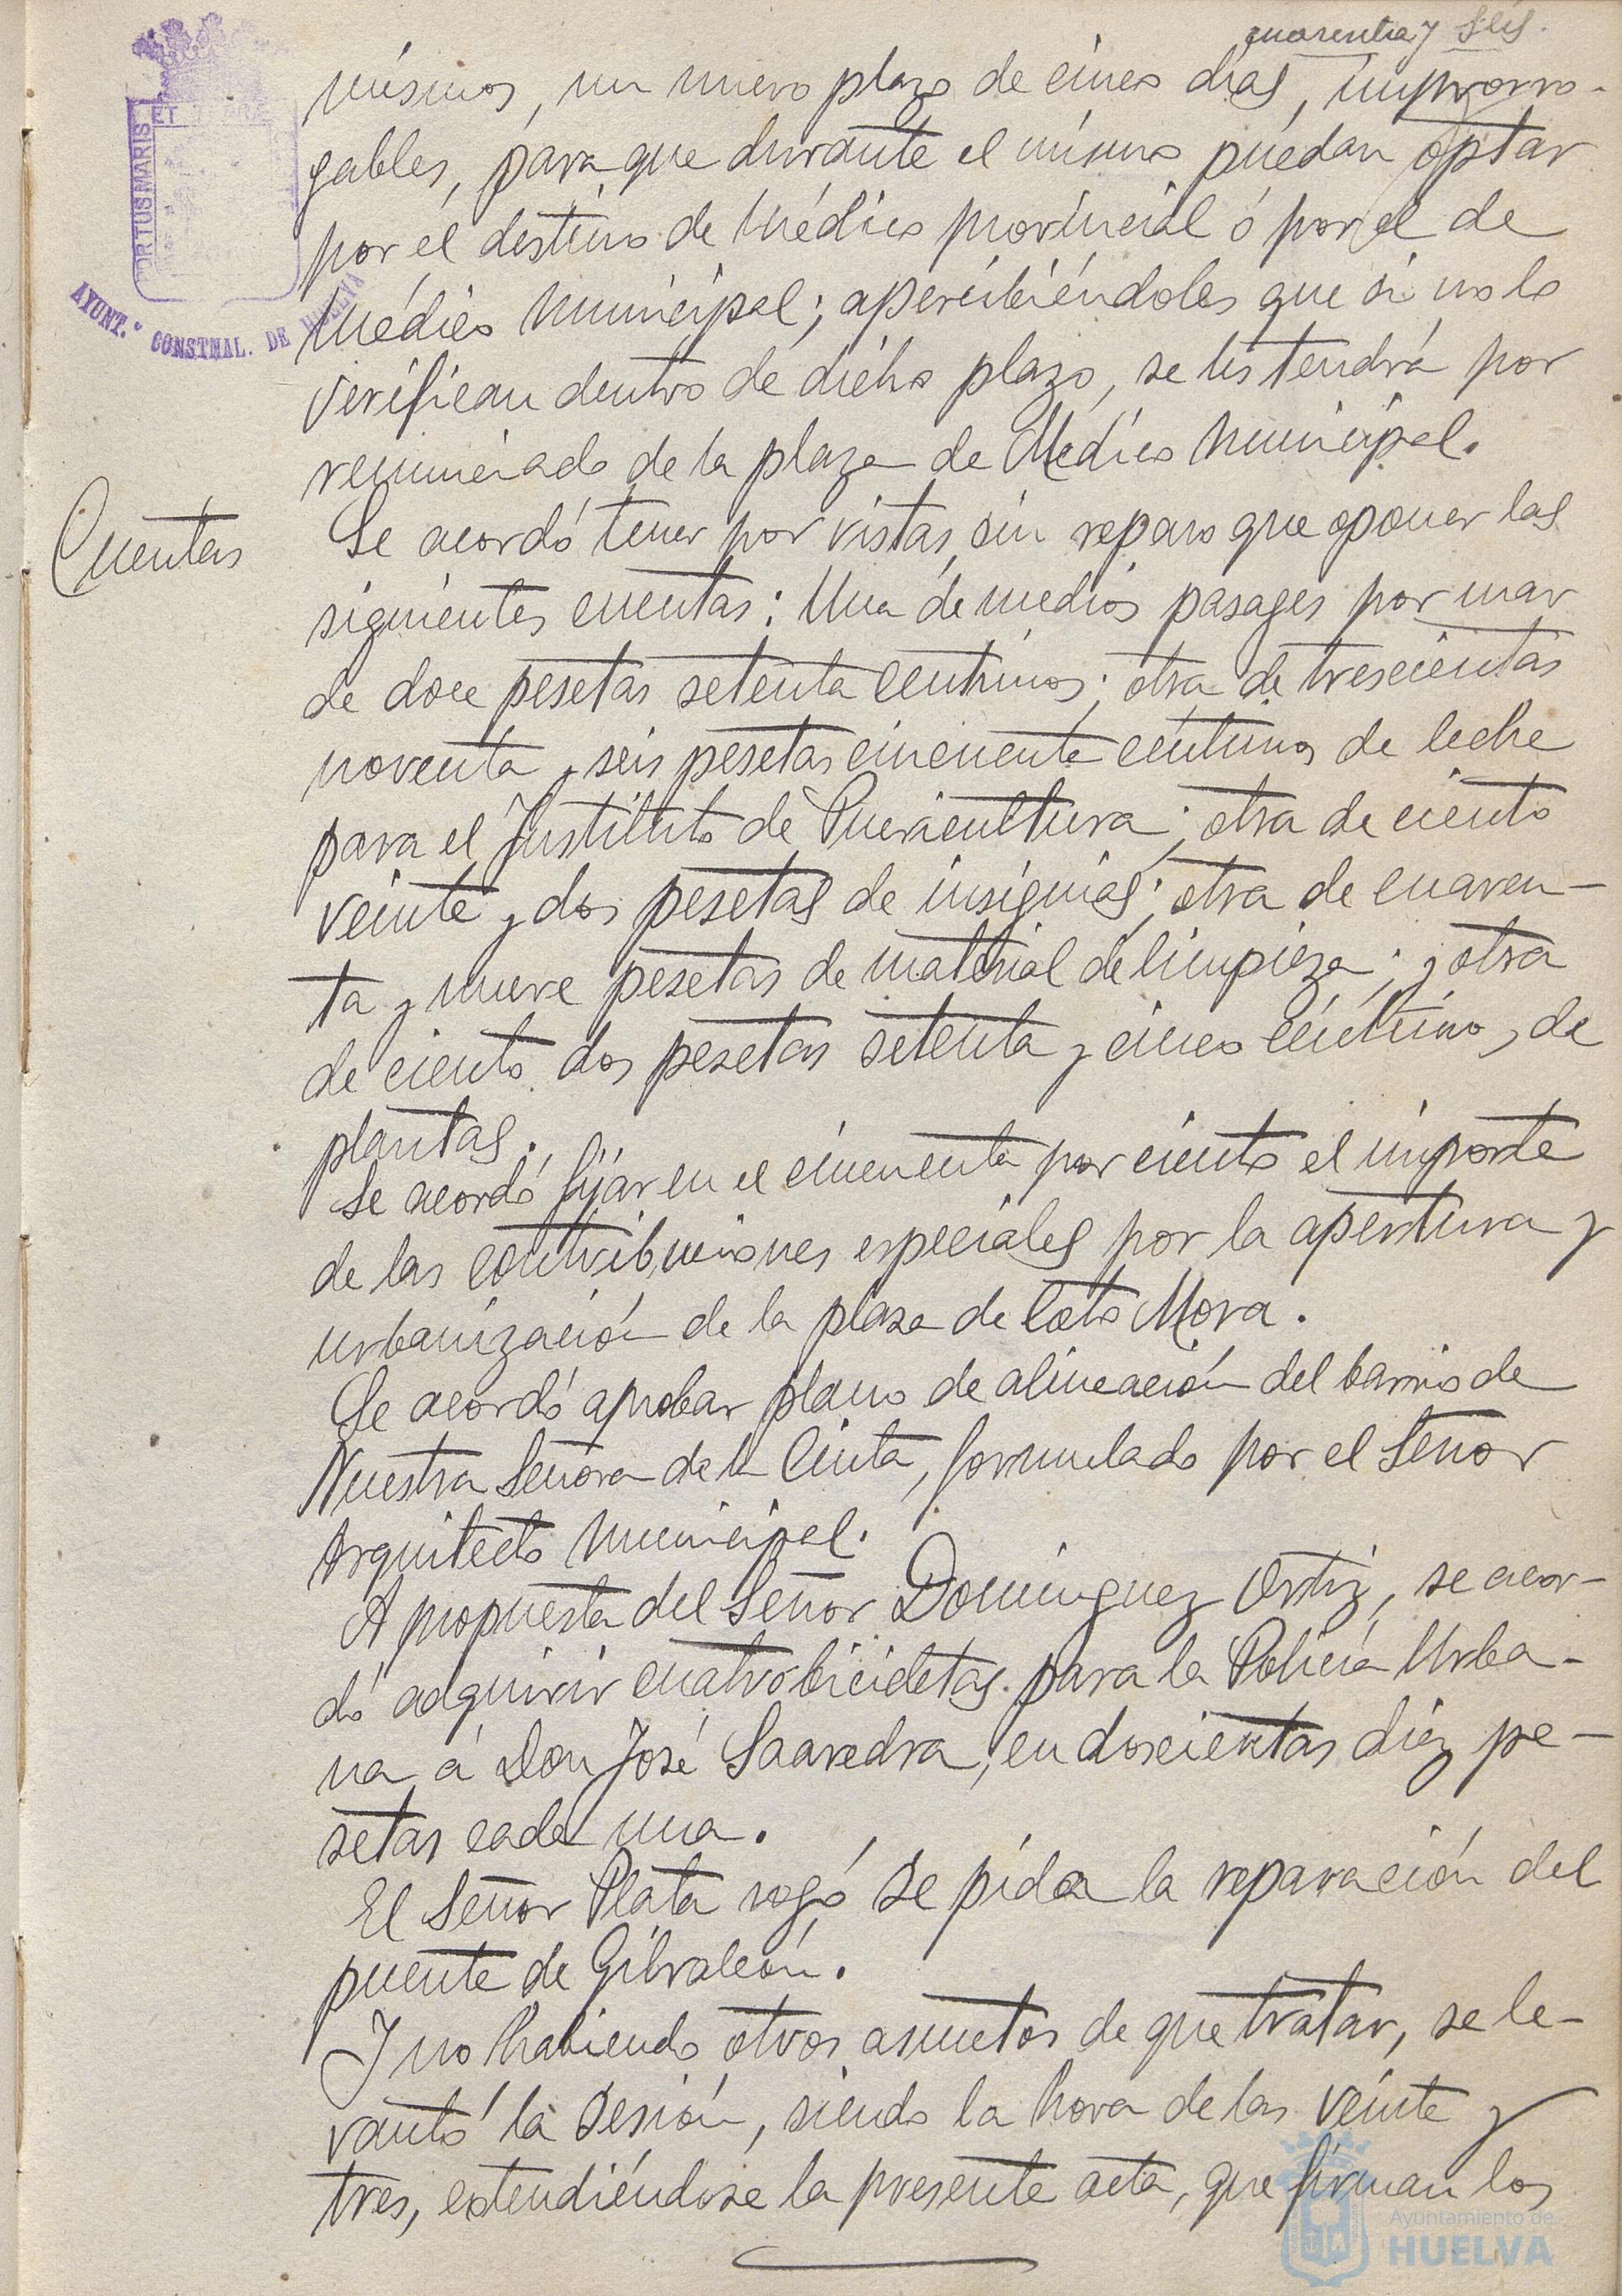 cuarenta y seis.
mismos, un nuevo plazo de cinco días, improrro-
gables, para que durante el mismo puedan optar
por el destino de Médico provincial ó por el de
Médico Municipal; apercibiéndoles que si no lo
verifican dentro de dicho plazo, se les tendrá por
renunciado de la plaza de Médico Municipal.
Cuentas
Se acordó tener por vistas, sin reparo que oponer las
siguientes cuentas: Una de medios pasages por mar
de doce pesetas setenta centimos; otra de trescientas
noventa y seis pesetas cincuenta céntimos de leche
para el Instituto de Puericultura; otra de ciento
veinte y dos pesetas de insignias; otra de cuaren-
ta y nueve pesetas de material de limpieza; y otra
de ciento dos pesetas setenta y cinco céntimos, de
plantas.
Se acordó fijar en el cincuenta por ciento el importe
de las contribuciones especiales por la apertura y
urbanización de la plaza de Coto Mora.
Se acordó aprobar plano de alineación del barrio de
Nuestra Señora de la Cinta, formulado por el Señor
Arquitecto Municipal.
A propuesta del Señor Dominguez Ortiz, se acor-
dó adquirir cuatro bicicletas para la Policía Urba-
na á Don José Saavedra, en doscientas diez pe-
setas cada una.
El Señor Plata rogó se pida la reparación del
puente de Gibraleón.
Y no habiendo otros asuntos de que tratar, se le-
vantó la sesión, siendo la hora de las veinte y
tres, extendiéndose la presente acta, que firman los
PORTUS MARIS
ET
AYUNT.º CONSTNAL. DE HUELVA
Ayuntamiento de
HUELVA